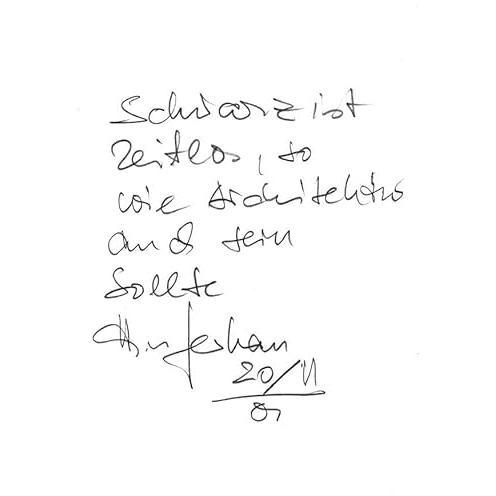 Schwarz ist
zeitlos, so
wie Architektur
auch sein
sollte
20/11
01